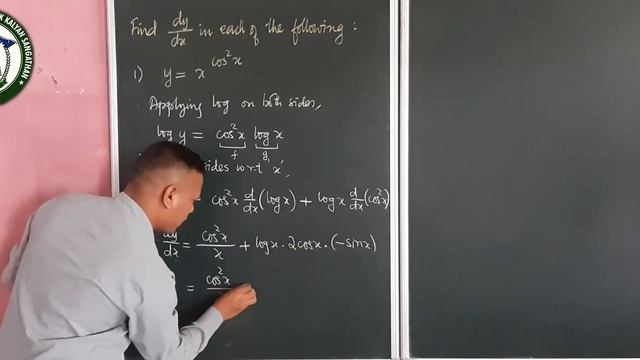 KALYAN SANGATHAN
Find dy/dx in each of the following :
1) y = x^cos²x
Applying log on both sides,
log y = cos²x log x
f g
sides w.r.t 'x',
= cos²x d/dx (log x) + log x d/dx (cos²x)
dy/dx = cos²x/x + log x . 2cos x . (-sin x)
= cos²x